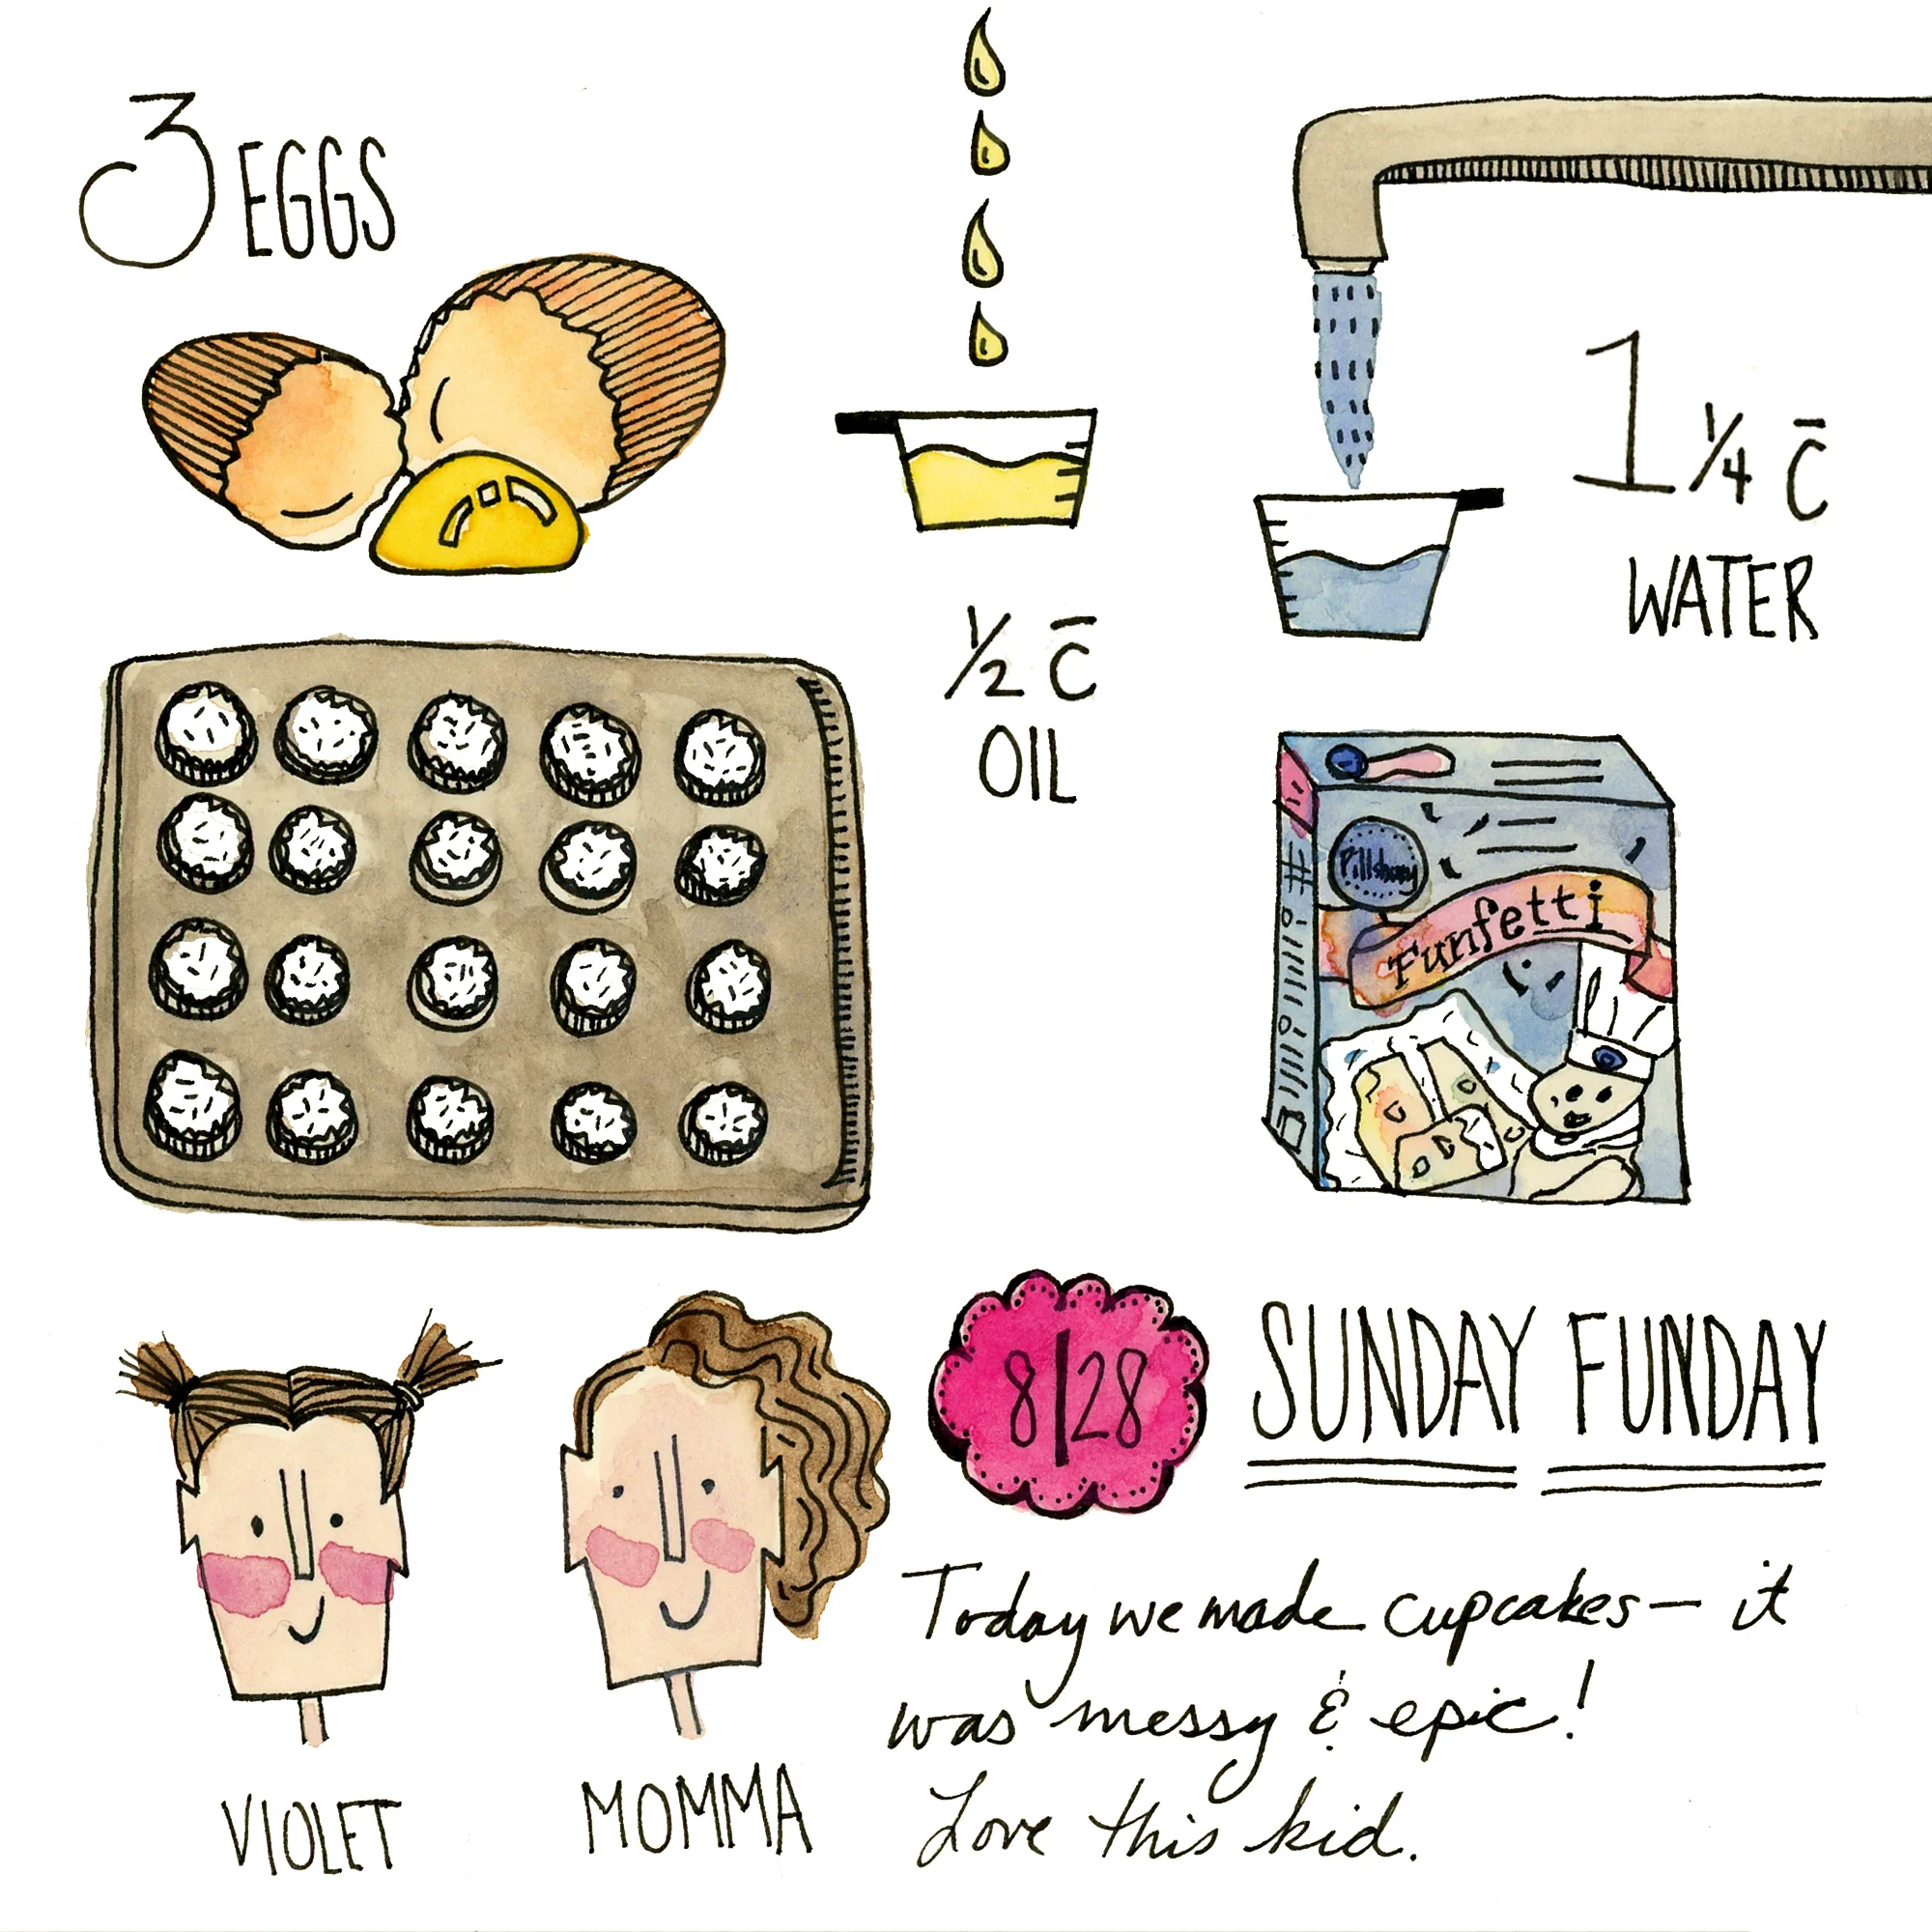 3 EGGS
1/2 c̄
OIL
1 1/4 c̄
WATER
Pillsbury
Funfetti
8|28
SUNDAY FUNDAY
Today we made cupcakes— it
was messy & epic!
Love this kid.
VIOLET
MOMMA